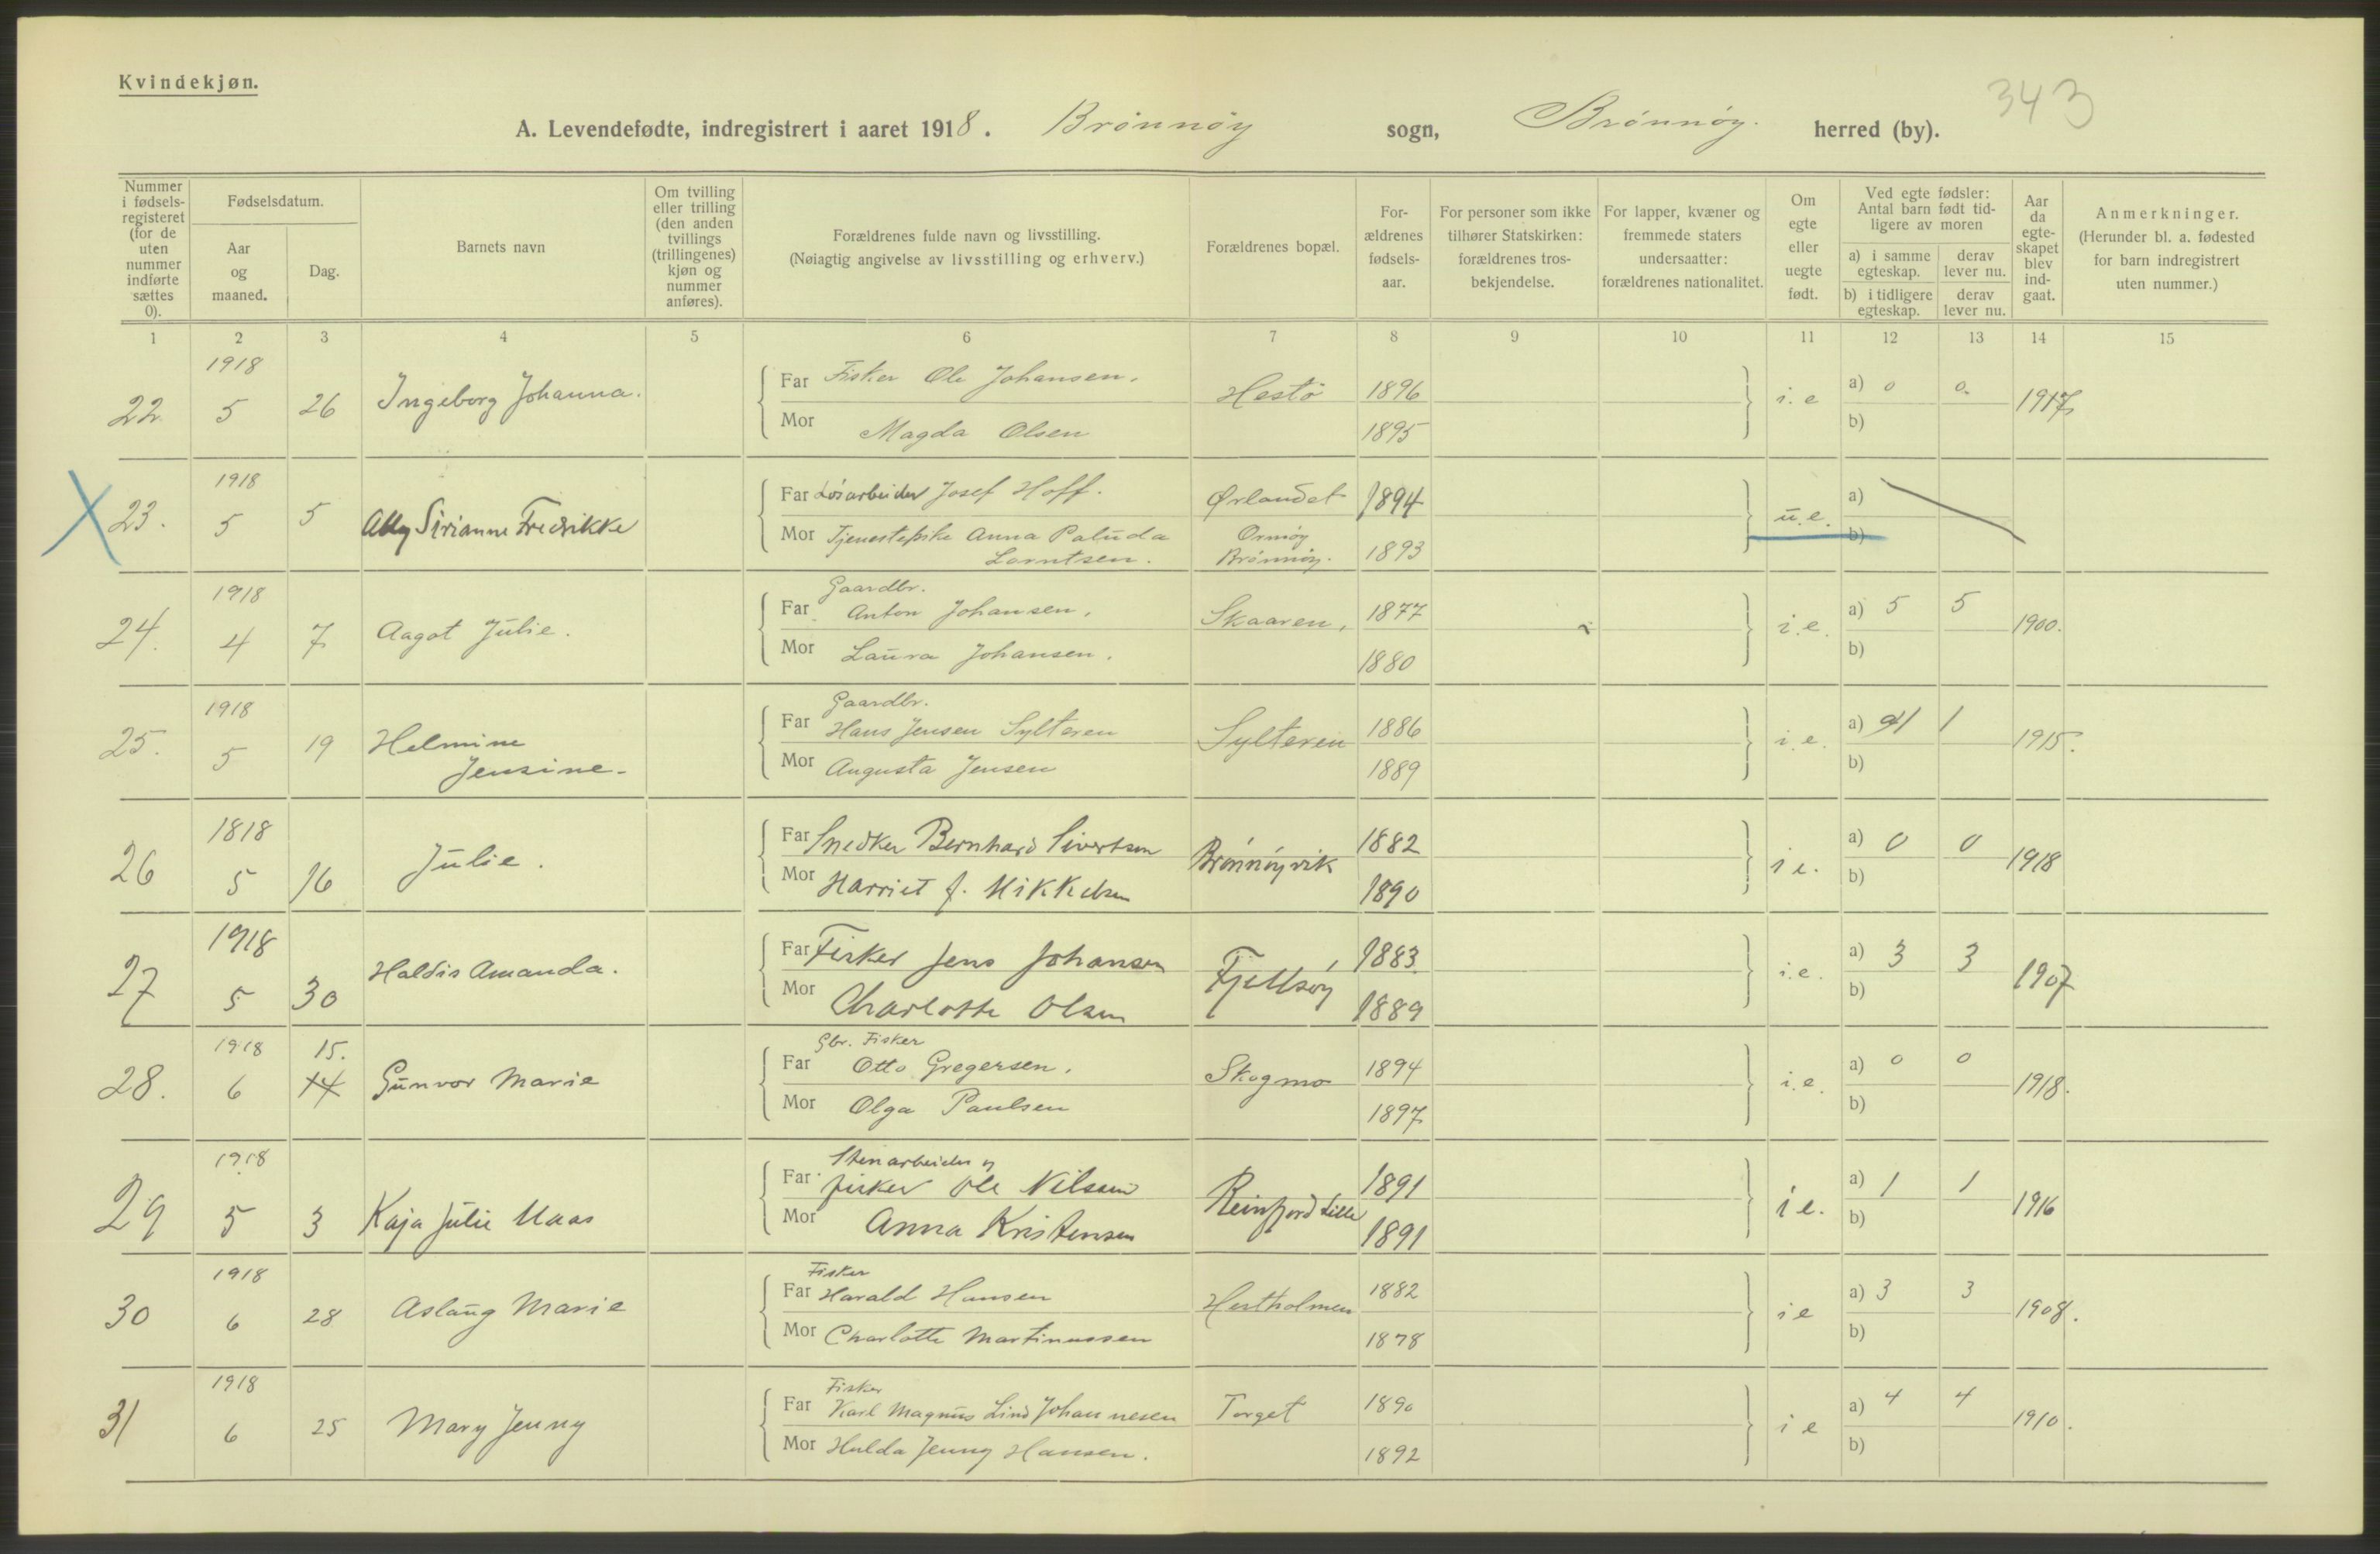 Kvindekjøn.
343
A. Levendefødte, indregistrert i aaret 1918. Brønnøy sogn, Brønnøy. herred (by).
Nummer i fødsels-registeret (for de uten nummer indførte sættes 0).
Fødselsdatum.
Aar og maaned.
Dag.
Barnets navn
Om tvilling eller trilling (den anden tvillings (trillingenes) kjøn og nummer anføres).
Forældrenes fulde navn og livsstilling.
(Nøiagtig angivelse av livsstilling og erhverv.)
Forældrenes bopæl.
For-ældrenes fødsels-aar.
For personer som ikke tilhører Statskirken: forældrenes tros-bekjendelse.
For lapper, kvæner og fremmede staters undersaatter: forældrenes nationalitet.
Om egte eller uegte født.
Ved egte fødsler: Antal barn født tid-ligere av moren
a) i samme egteskap.
derav lever nu.
b) i tidligere egteskap.
derav lever nu.
Aar da egte-skapet blev ind-gaat.
Anmerkninger.
(Herunder bl. a. fødested for barn indregistrert uten nummer.)
1 2 3 4 5 6 7 8 9 10 11 12 13 14 15
1918
22 5 26 Ingeborg Johanna.
Far Fisker Ole Johansen. Hestø 1896 i.e a) 0 0. 1917
Mor Magda Olsen 1895 b)
1918
X 23. 5 5 Ally Sirianne Fredrikke
Far Løsarbeider Josef Hoff. Ørlandet 1894 u.e. a)
Mor Tjenestepike Anna Paluda Lorntsen. Ormøy Brønnøy. 1893 b)
1918
24. 4 7 Aagot Julie.
Gaardbr.
Far Anton Johansen, Skaaren, 1877 i.e. a) 5 5 1900.
Mor Laura Johansen. 1880 b)
1918
25. 5 19 Helmine Jensine.
Gaardbr.
Far Hans Jensen Sylteren Sylteren 1886 i.e. a) 1 1 1915.
Mor Augusta Jensen 1889 b)
1818
26 5 16 Julie.
Far Snedker Bernhard Sivertsen Brønnøyvik 1882 i e. a) 0 0 1918
Mor Harriet J. Mikkelsen 1890 b)
1918
27 5 30 Haldis Amanda.
Far Fisker Jens Johansen Fjellsøy 1883 i.e. a) 3 3 1907
Mor Charlotte Olsen 1889 b)
1918 15.
28. 6 14 Gunvor Marie
Gbr. Fisker
Far Otto Gregersen. Skogmo 1894 i.e. a) 0 0 1918.
Mor Olga Paulsen 1897 b)
1918
29 5 3 Kaja Julie Maas
Stenarbeider og
Far fisker Ole Nilsen Reinfjord Lille 1891 i e. a) 1 1 1916
Mor Anna Kristensen 1891 b)
1918
30 6 28 Aslaug Marie
Fisker
Far Harald Hansen Hestholmen 1882 i e a) 3 3 1908.
Mor Charlotte Martinussen 1878 b)
1918
31 6 25 Mary Jenny
Fisker
Far Karl Magnus Lind Johannesen Torget 1890 i e a) 4 4 1910.
Mor Hulda Jenny Hansen. 1892 b)